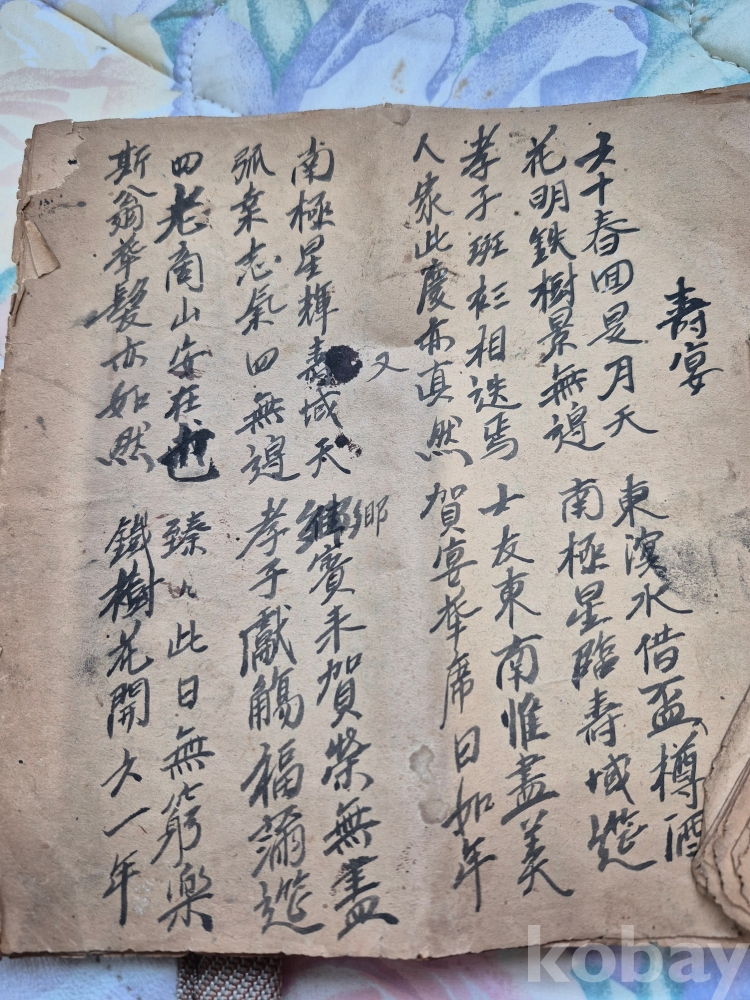 壽宴
六十春囬是月天 東濱水借盃樽酒
花明鉄樹景無邊 南極星臨壽域筵
孝子班衫相迭焉 士友東南惟盡美
人衆此慶亦真然 賀宴華席日如年
又
南極星輝壽域天 鄉賓来賀榮無盡
弧桒志氣四無邊 孝子獻觴福滿筵
四老商山安在也 臻々此日無窮樂
斯翁華髮亦如然 鐵樹花開六一年
kobay